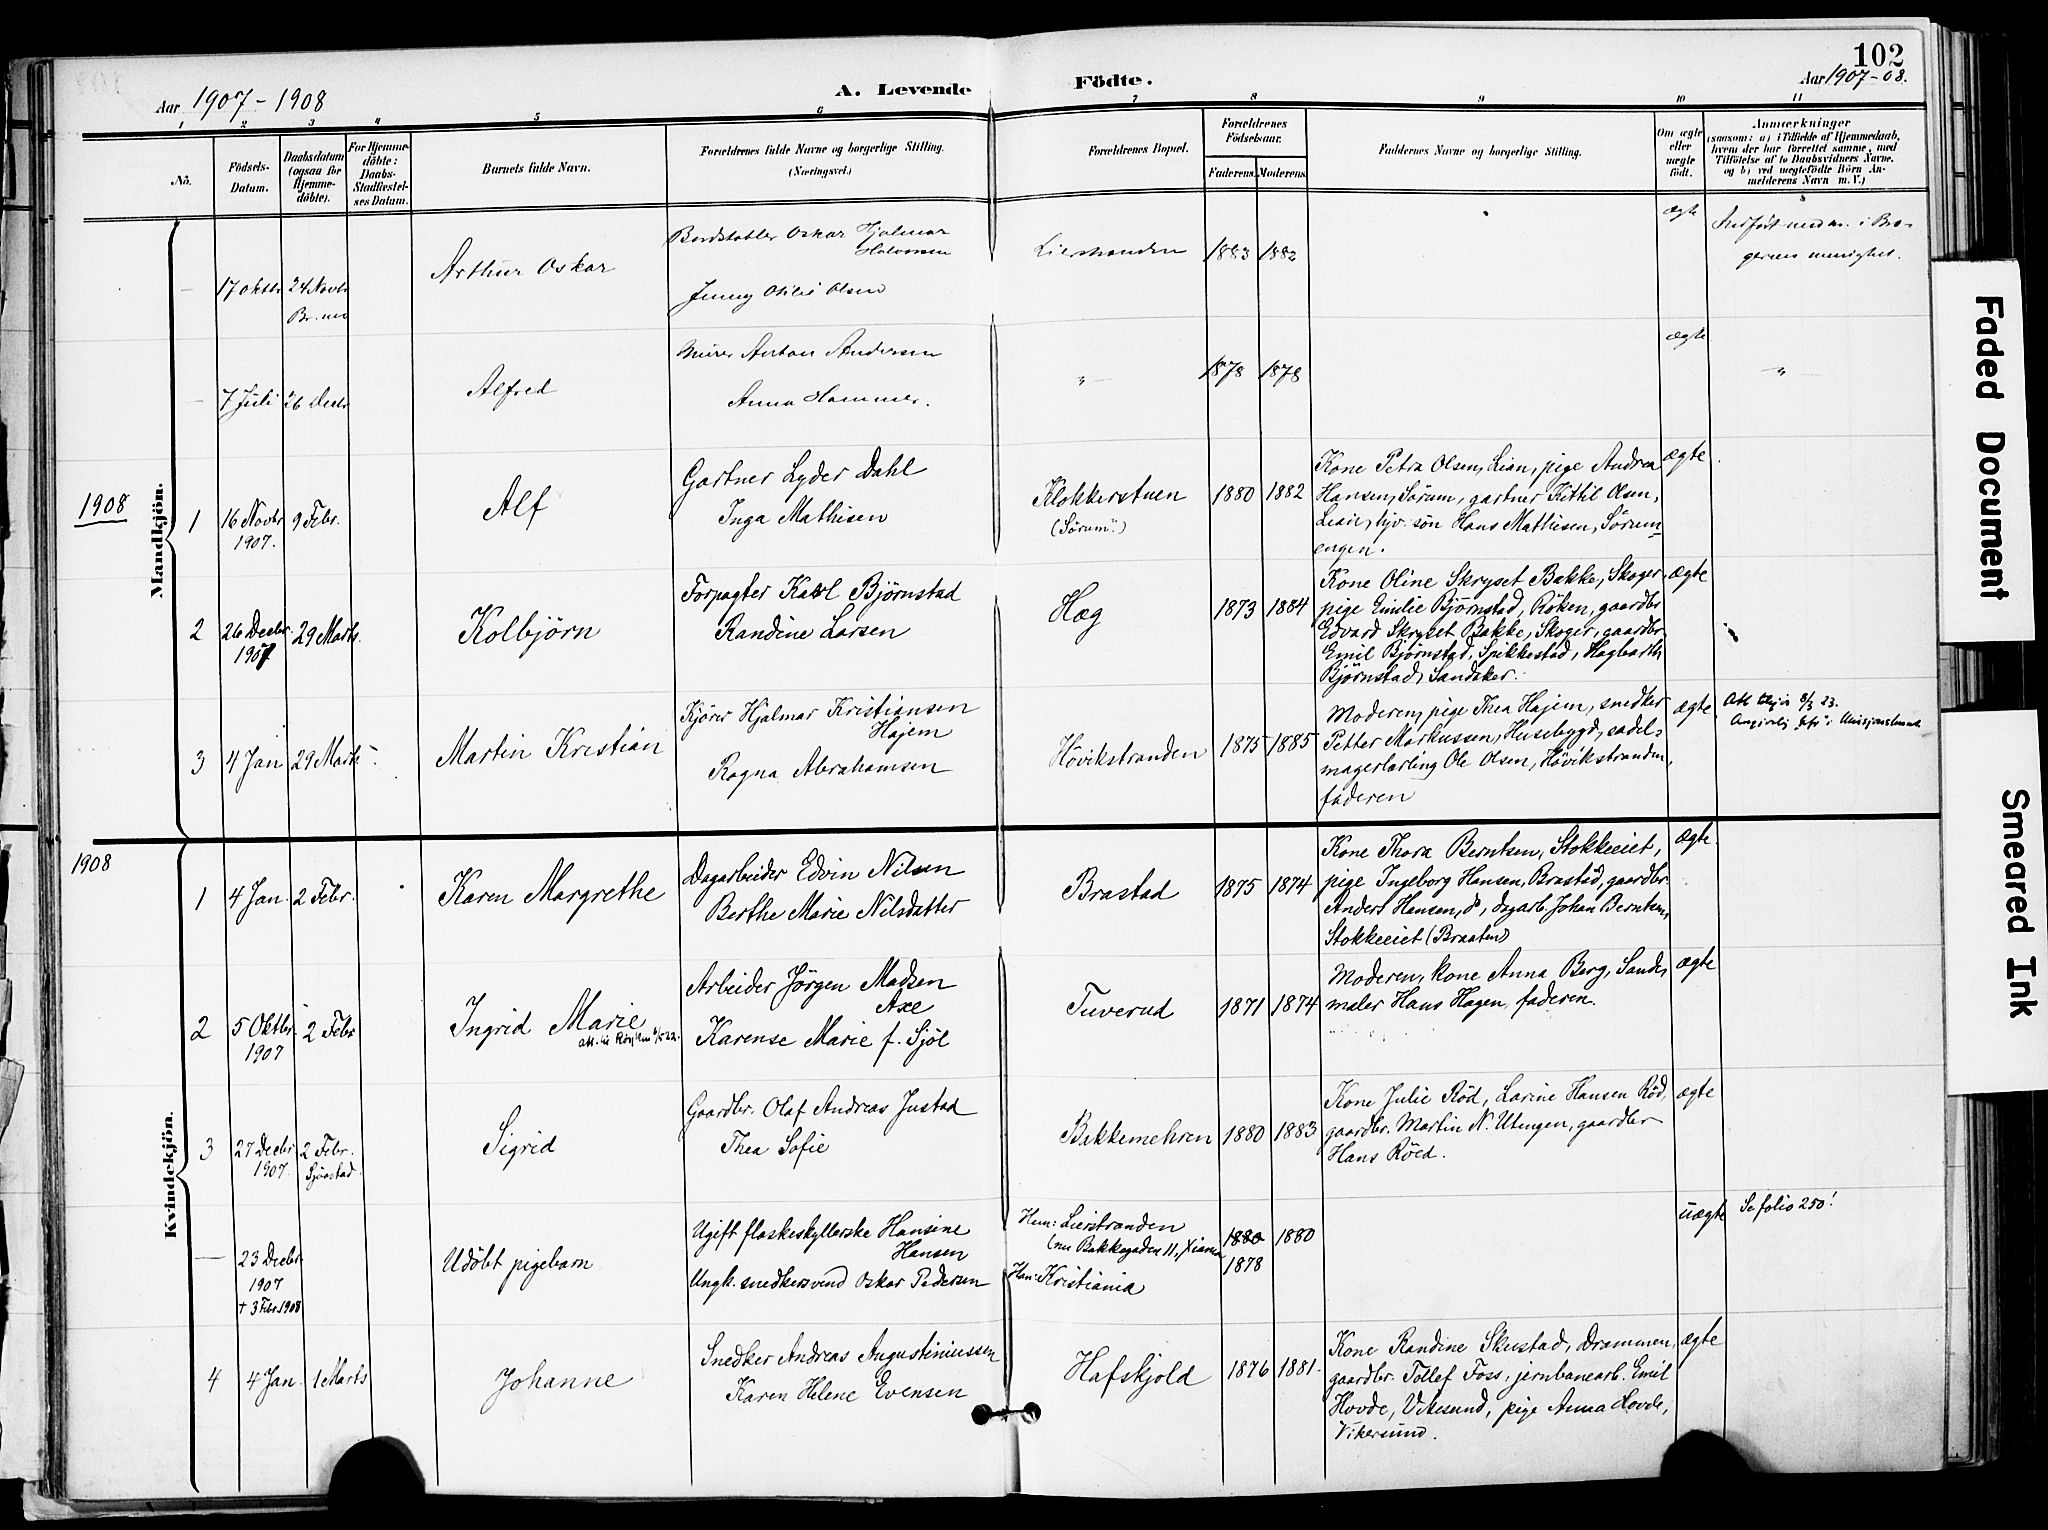 102
Aar 1907-1908
A. Levende Födte.
Aar 1907-08.
1 2 3 4 5 6 7 8 9 10 11
No.
Födsels-Datum.
Daabsdatum (ogsaa for Hjemme-döbte).
For Hjemme-döbte: Daabs-Stadfæstel-ses Datum.
Barnets fulde Navn.
Forældrenes fulde Navne og borgerlige Stilling. (Næringsvei.)
Forældrenes Bopæl.
Forældrenes Födselsaar.
Faderens. Moderens.
Faddernes Navne og borgerlige Stilling.
Om ægte eller uægte födt.
Anmærkninger
(saasom: a) i Tilfælde af Hjemmedaab,
hvem der har forrettet samme, med
Tilföielse af to Daabsvidners Navne.
og b) ved uægtefödte Börn An-
melderens Navn m. V.)
Mandkjön.
— 17 oktbr 24 Novbr
Arthur Oskar
Bordstabler Oskar Hjalmar
Halvorsen
Jenny Otilie Olsen
Lierstranden 1883 1882
ægte
Indført nedm. i Bra-
gernes menighet.
— 7 Juli 26 Decbr
Alfred
Murer Anton Andersen
Anna Hammer.
— " — 1878 1878
ægte
— " —
1908
1 16 Novbr 1907. 9 Febr.
Alf
Gartner Lyder Dahl
Inga Mathisen
Klokkerstuen
(Sørum")
1880 1882
Kone Petra Olsen, Lian, pige Andrea
Hansen, Sörum, gartner Kittil Olsen,
Lian, hjv. søn Hans Mathisen, Sörum-
engen.
ægte
2 26 Decbr. 1907 29 Marts.
Kolbjörn
Forpagter Karl Björnstad
Randine Larsen
Hæg 1873 1884
Kone Oline Skryset Bakke, Skoger,
pige Emilie Bjørnstad, Röken, gaardbr
Edvard Skryset Bakke, Skoger, gaardbr.
Emil Bjørnstad, Spikkestad, Hagbarth
Bjørnstad, Sandaker.
ægte
3 4 Jan 29 Marts
Martin Kristian
Kjörer Hjalmar Kristiansen
Hajem
Ragna Abrahamsen
Hövikstranden 1875 1885
Moderen, pige Thea Hajem, snedker
Petter Markussen, Husebygd, sadel-
magerlærling Ole Olsen, Hövikstranden,
faderen
ægte
Kvindekjön.
1908
1 4 Jan. 2 Febr.
Karen Margrethe
Dagarbeider Edvin Nilsen
Berthe Marie Nilsdatter
Brastad 1875 1874
Kone Thora Berntsen, Stokkeeiet,
pige Ingeborg Hansen, Brastad, gaardbr.
Anders Hansen, do, dagarb. Johan Berntsen,
Stokkeeiet (Braaten)
ægte
2 5 Oktbr. 1907 2 Febr
Ingrid Marie
Arbeider Jörgen Madsen
Axe
Karense Marie f. Sjöl
Tuverud 1871 1874
Moderen, kone Anna Berg, Sande,
maler Hans Hagen, faderen.
ægte
3 27 Decbr 1907. 2 Febr. Sjåstad.
Sigrid
Gaardbr. Olaf Andreas Justad
Thea Sofie
Bakkemehren 1880 1883
Kone Julie Röd, Larine Hansen Röd,
gaardbr. Martin N. Utengen, gaardbr
Hans Röed.
ægte
— 23 Decbr 1907 † 3 Febr. 1908
Udöbt pigebarn
Ugift flaskeskyllerske Hansine
Hansen
Ungk. snedkersvend Oskar Pedersen
Hun: Lierstranden
(nu Bakkegaden 11, Xiania
Han: Kristiania
1880 1880
1878
uægte
Se folio 250!
4 4 Jan. 1 Marts
Johanne
Snedker Andreas Augustiniussen
Karen Helene Evensen
Hafskjold 1876 1881
Kone Randine Skustad, Drammen,
gaardbr. Tollef Foss, jernbanearb. Emil
Hovde, Vikesund, pige Anna Hovde,
Vikersund.
ægte
Faded Document
Smeared Ink